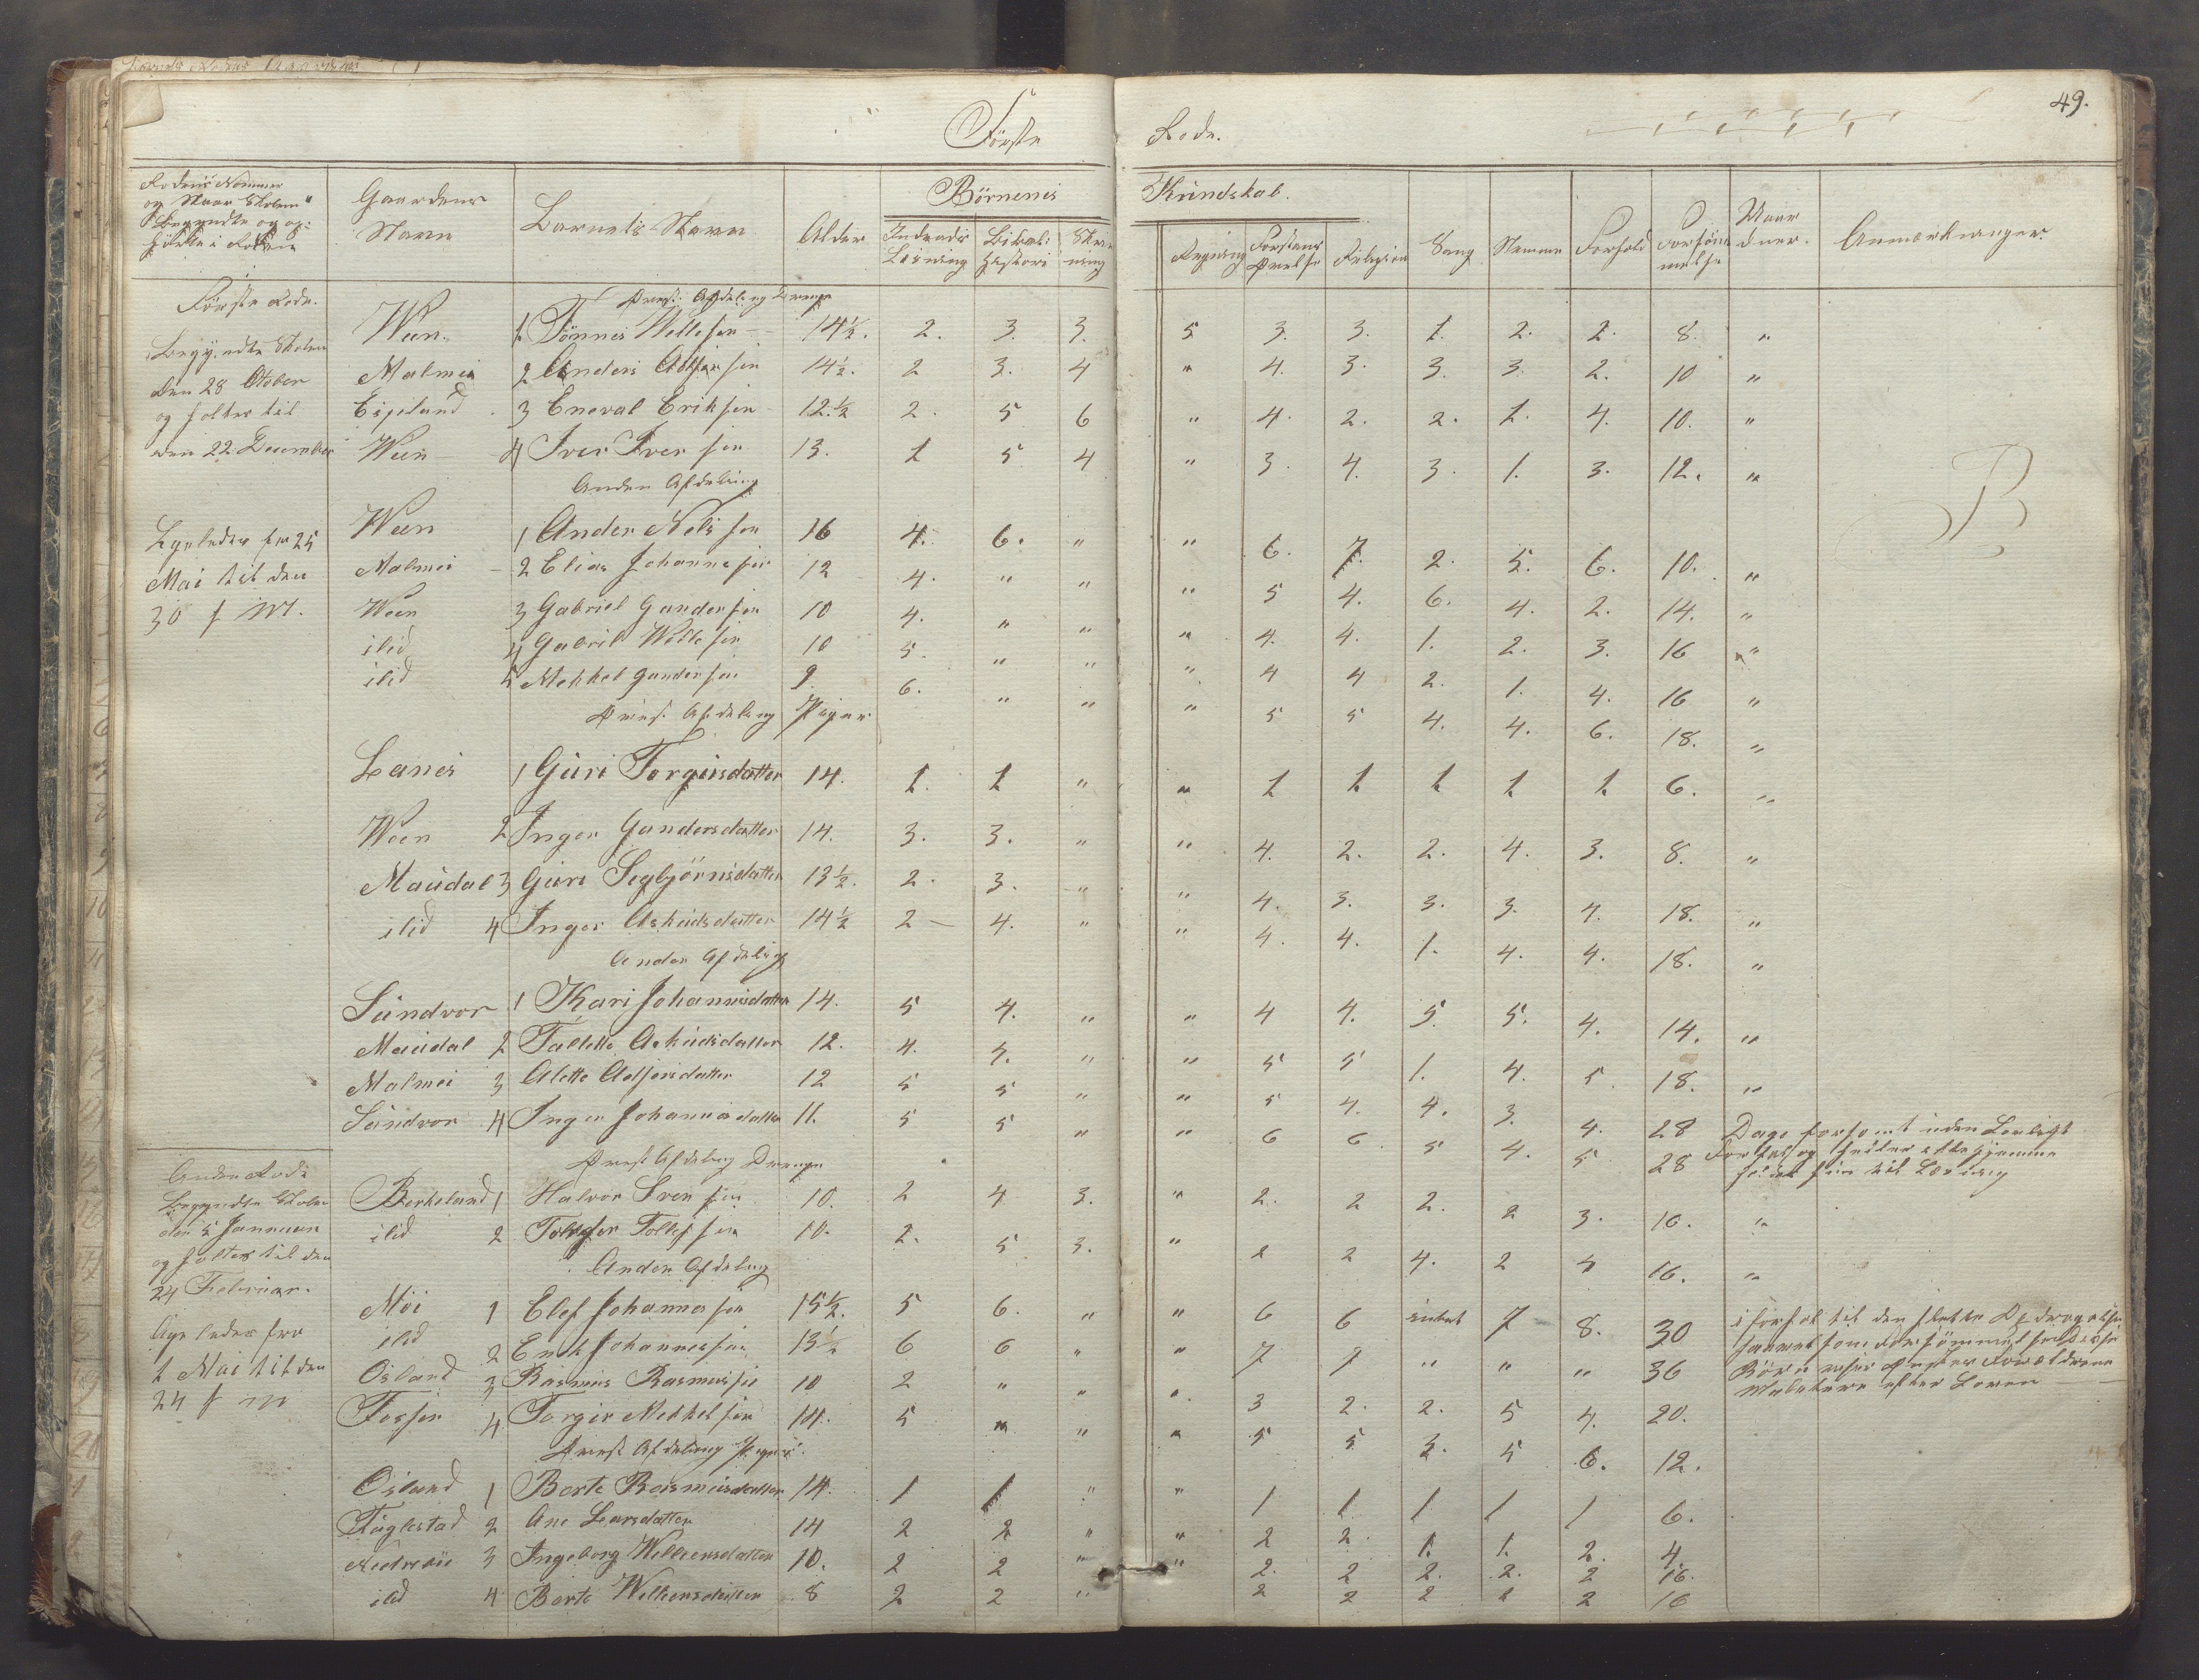 49.
Første Rode.
Rodens Nommer
og Naar Skolen
Begyndte og op-
hørte i Roden
Gaardens Navn
Barnets Navn
Alder
Børnenes Kundskab.
Indenads Læsning
Bibel: Historie
Skrivning
Regning
Forstands Øvelse
Religion
Sang
Nemme
Forhold
Forsømmelse
Anmærkninger.
Første Rode.
Begyndte Skolen
den 28 Otober
og holtes til
den 22 December
Første Afdeling Drenge
Ween. 1 Tönnes Vellesen 14½. 2. 3. 3. 5 3. 3. 1. 2. 2. 8. "
Malmei 2 Anders 14½. 2 3. 4 " 4. 3. 3. 3. 2. 10 "
Eigeland 3 Eneval Eriksen 12.½ 2. 5 6 " 4. 2. 2. 1. 4. 10. "
Ween 4 Iver Iversen 13. 1 5 4 " 3. 4. 3. 1. 3. 12. "
Anden Afdeling
Ligeledes fra 25
Mai til den
30 f M.
Ween 1 Ander Nelsen 16 4. 6. " " 6. 7. 2. 5. 6. 10. "
Malmei 2 Elias Johannesen 12 4. " " " 5 4. 6. 4. 2. 14. "
Ween 3 Gabriel Gundersen 10 4. " " " 4. 4. 1. 2. 3. 16 "
ibid 4 Gabriel Wellesen 10 5. " " " 4 4 2. 1. 4. 16 "
ibid 5 Mekkel Gundersen 9 6. " " " 5 5 4. 4. 6. 18. "
Første Afdeling Piger
Lanes 1 Guri Torgersdatter 14. 1. 1 " " 1 1 1 1 1. 6. "
Ween 2 Inger Gundersdatter 14. 3. 3. " " 4. 2. 2. 4. 3. 8. "
Maudal 3 Guri Segbjörnsdatter 13½. 2. 3. " " 4. 3. 3. 3. 4. 18. "
ibid 4 Inger Askudsdatter 14½ 2 4. " " 4. 4. 1. 4. 4. 18. "
Anden Afdeling
Sundvor 1 Kari Johannesdatter 14. 5 4. " " 4 4. 5. 5. 4. 14. "
Maudal 2 Tallette Askudsdatter 12. 4. 4. " " 5 5 1. 4. 5. 18. "
Malmei 3 Alette 12 5 5 " " 5 4. 4. 3. 4. 28 Dage forsømt uden Lovligt
Sundvor 4 Inger Johannesdatter 11. 5 5 " " 6 6 5 4. 5 28
Anden Rode
Begyndte Skolen
den 5 Januari
og holtes til den
24 Februar.
Første Afdeling Drenge
Berkeland 1 Halvor Iversen 10. 2 4 3. " 2. 2 2. 2 3. 16. "
ibid 2 10. 2. 5 3. " 2 2 4. 2 4 16. "
Anden Afdeling
Ligeledes fra
1 Mai til den
24 f M
Möi 1 Elef Johannesen 15½. 5 6. " " 6 6 intet 7 8. 30
ibid 2 Johannesen 13½ 6 6 " " 7 7 " " " 36
Osland 3 Rasmus Rasmussen 10 2 " " " 3 2. 2. 5 4. 20.
Fossen 4 Torger Mekkelsen 14. 5 " " " 5 5 3. 5 6. 12.
Første Afdeling Piger.
Osland 1 Berte Rasmusdatter 14. 1 1 " " 1 1 1 1 1 6.
Fuglestad 2 Ane Larsdatter 14 2 2 " " 2 2. 1. 1. 2. 4.
3 Ingeborg Welleensdatter 10. 2 2 " " 2. 2 2. 2. 2 16.
ibid 4 Berte Welleensdatter 8 2 2 " 2 2 2 2 2 16